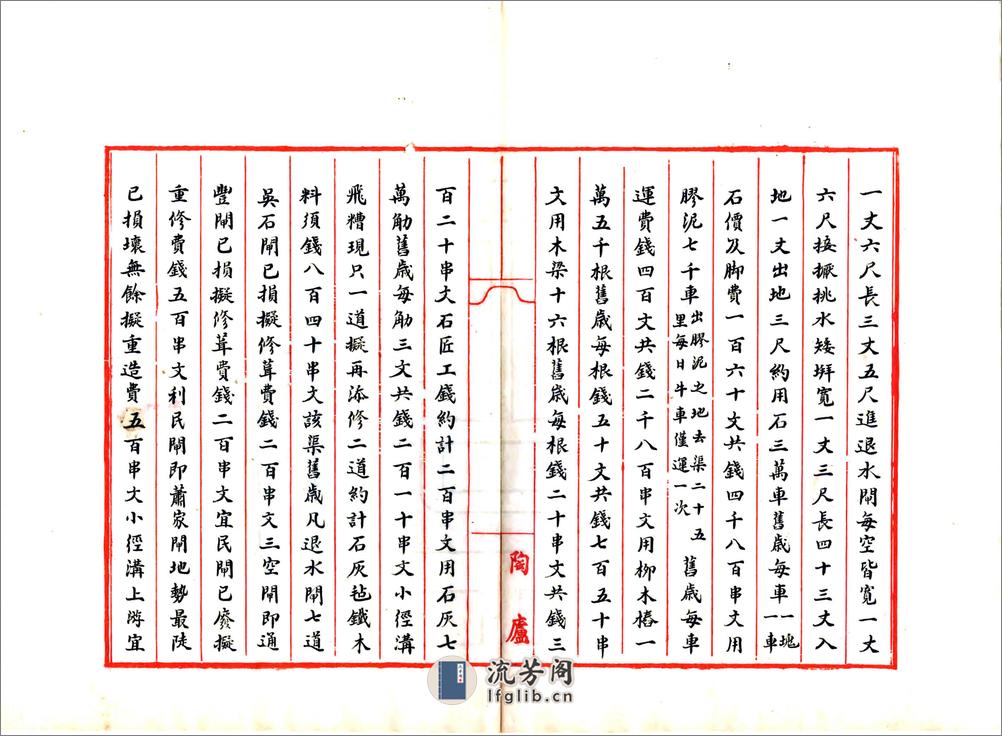 一丈六尺長三丈五尺進退水閘每空皆寬一丈
六尺接撅挑水矮塀寬一丈三尺長四十三丈入
地一丈出地三尺約用石三萬車舊歲每車一車一塊
石價及脚費一百六十文共錢四千八百串文用
膠泥七千車出膠泥之地去渠二十五里每日牛車僅運一次舊歲每車
運費錢四百文共錢二千八百串文用柳木樁一
萬五千根舊歲每根錢五十文共錢七百五十串
文用木梁十六根舊歲每根錢二十串文共錢三
陶廬
百二十串文石匠工錢約計二百串文用石灰七
萬觔舊歲每觔三文共錢二百一十串文小徑溝
飛糟現只一道擬再添修二道約計石灰毡鐵木
料須錢八百四十串文該渠舊歲凡退水閘七道
吳石閘已損擬修葺費錢二百串文三空閘即通
豐閘已損擬修葺費錢二百串文宜民閘已廢擬
重修費錢五百串文利民閘即蕭家閘地勢最陡
已損壞無餘擬重造費五百串文小徑溝上游宜
流芳阁
lfglib.cn